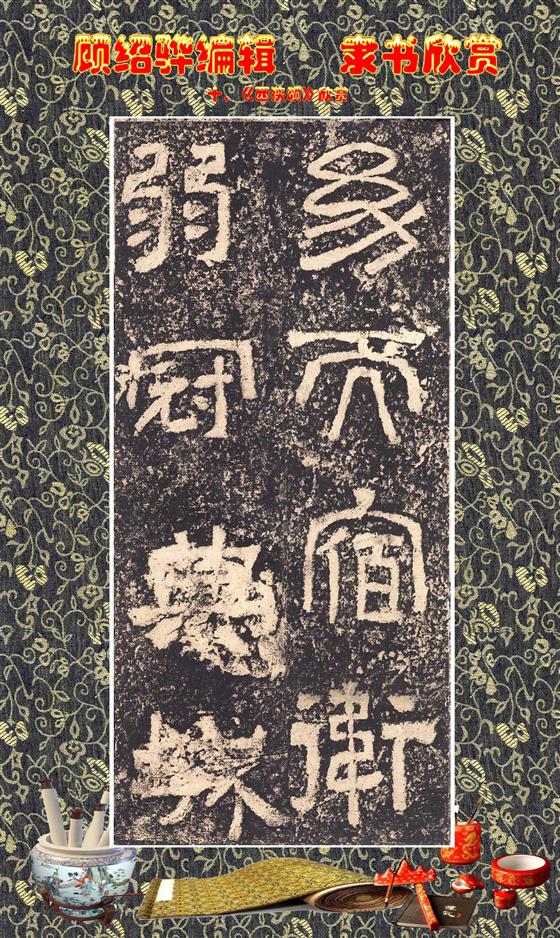 顾绍骅编辑 隶书欣赏
十、《西狭颂》欣赏
幼而宿衛
弱冠典城